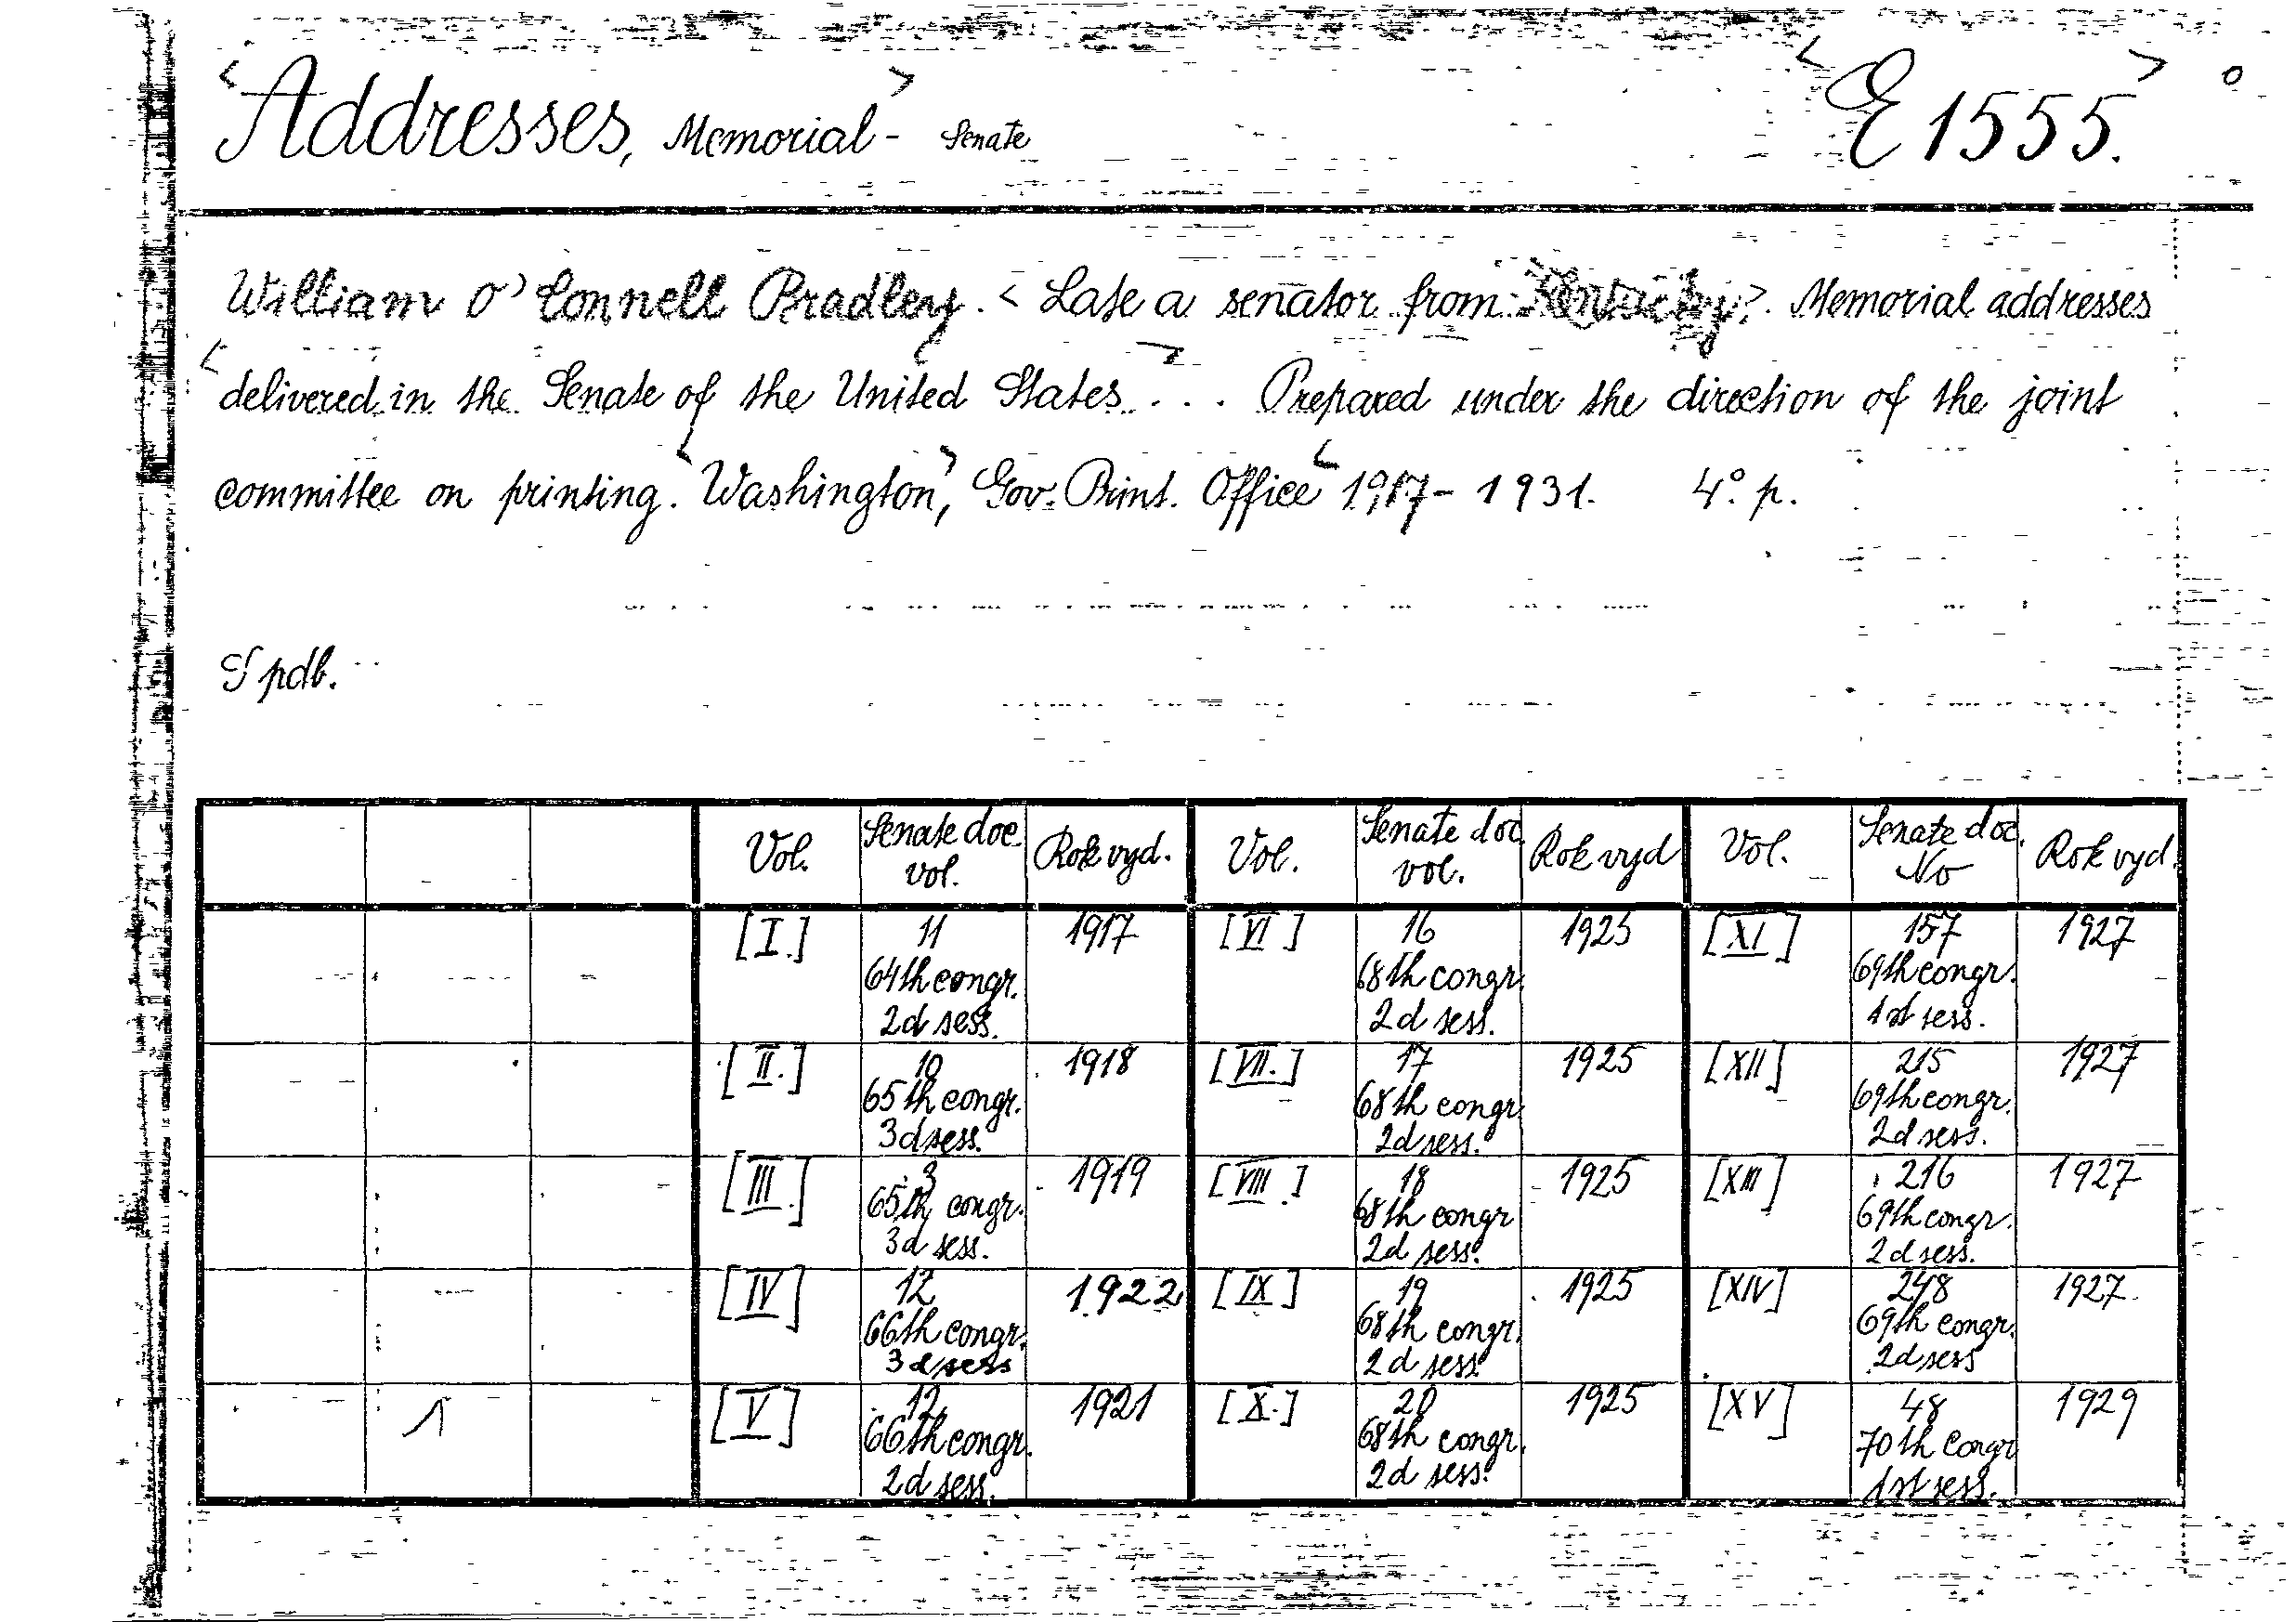 <Addresses, Memorial-> Senate <E 1555.> o
William O'Connell Bradley. <Late a senator from Kentucky>. Memorial addresses
<delivered in the Senate of the United States> ... Prepared under the direction of the joint
committee on printing. <Washington,> Gov. Print. Office < 1917-1931. 4° p.
S pdb.
Vol. Senate doc. vol. Rok vyd. Vol. Senate doc. vol. Rok vyd Vol. Senate doc. No Rok vyd.
[I.] 11 64th congr. 2d sess. 1917 [VI] 16 68th congr. 2d sess. 1925 [XI] 157 69th congr. 1st sess. 1927
[II.] 10 65th congr. 3d sess. 1918 [VII.] 17 68th congr. 2d sess. 1925 [XII] 215 69th congr. 2d sess. 1927
[III.] 3 65th congr. 3d sess. 1919 [VIII.] 18 68th congr 2d sess. 1925 [XIII] 216 69th congr. 2d sess. 1927
[IV] 12 66th congr. 3d sess 1922 [IX] 19 68th congr. 2d sess 1925 [XIV] 248 69th congr. 2d sess 1927.
1 [V] 12 66th congr. 2d sess. 1921 [X.] 20 68th congr. 2d sess. 1925 [XV] 48 70th Congr 1st sess. 1929